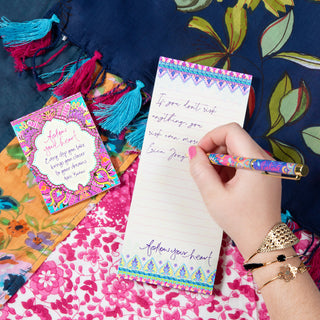 Adorn
your heart
Every day you take
brings you closer
to your dreams
If you don't risk
anything, you
risk even more.
Erica Jong
Adorn your heart